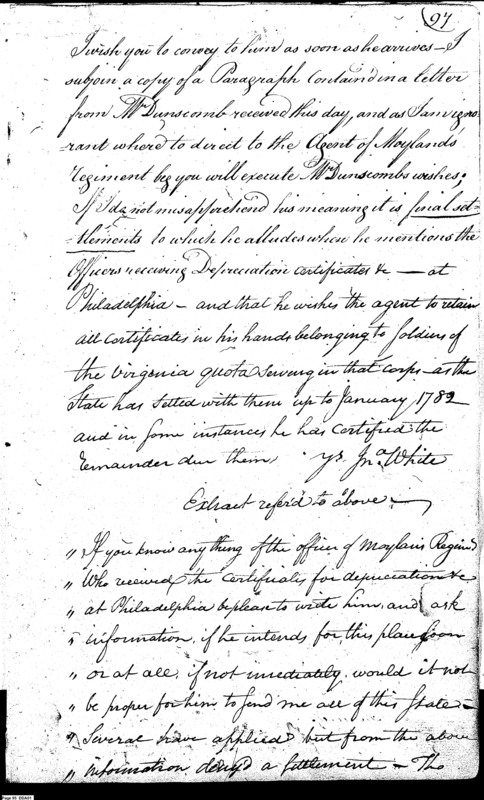 97
I wish you to convey to him as soon as he arrives – I
subjoin a copy of a Paragraph Contain'd in a letter
from Mr Dunscomb received this day, and as I am igno
rant where to direct to the Agent of Moylands
regiment beg you will execute Mr Dunscombs wishes;
If I do not misapprehend his meaning it is final set-
tlements to which he alludes when he mentions the
Officers receiving Depreciation certificates &c — at
Philadelphia – and that he wishes the agent to retain
all certificates in his hands belonging to soldiers of
the Virginia quota serving in that corps – as the
State has settled with them up to January 1782
and in some instances he has certified the
remainder due them. yr. Jna. White
Extract refer'd to above —
" If you know any thing of the officer of Moylans Regimt
" Who received the Certificates for depreciation &c
" at Philadelphia be please to write him, and ask
" information, if he intends for this place soon
" or at all, if not imediately, would it not
" be proper for him to send me all of this State –
" Several have applied but from the above
" information deny'd a settlement – The
Page 95 DDA01